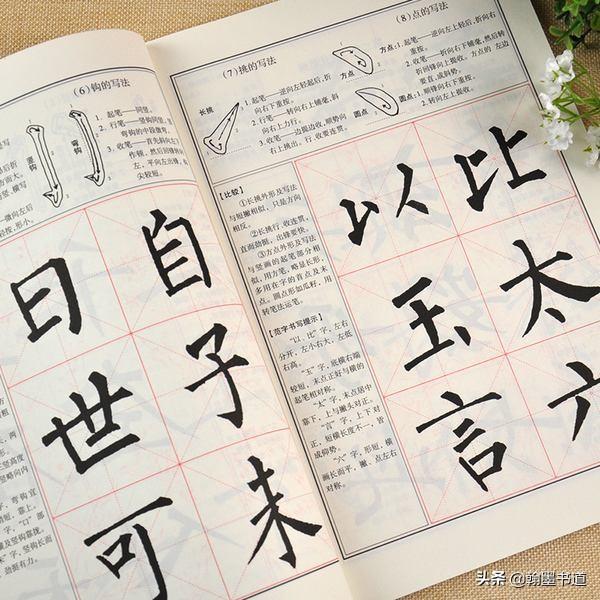 (6)钩的写法
竖钩
弯钩
1. 起笔——同竖。
2. 行笔——竖钩同竖,
弯钩的中段微弯。
自
日
子
世
未
可
(7)挑的写法
长挑
1. 起笔——逆向左轻起后,折
向右下重按。
2. 行笔——转向右上铺毫,斜
向右上力行。
3. 收笔——边提边收,顺势向
右上挑出。行、收要连贯。
(8)点的写法
方点
方点:1. 起笔——逆向左上轻后,折向右
重按。
圆点
圆点:1. 顺锋向右下重按。
2. 转向左上提收。
【比较】
①长挑外形及写法
与短撇相似,只是方向
相反。
②长挑行、收连贯,
直而劲挺,出锋要快。
③方点外形及写法
与竖画的起笔部分相
似,用方笔,略显长形,
多用在字的首点及末
点。圆点形如瓜籽,用
转笔法运笔。
【范字书写提示】
“以、比”字,左右
分开,左小右大,左低
右高。
“玉”字,底横右端
较短,末点正好与横的
起笔相对称。
“太”字,末点居中
靠下,上与撇头对正。
“言”字,上下对
正,短横长度不一,皆
成仰势。
“六”字,形短,横
画长而平,撇、点左右
对称。
比
以
太
玉
六
言
头条 @翰墨书道